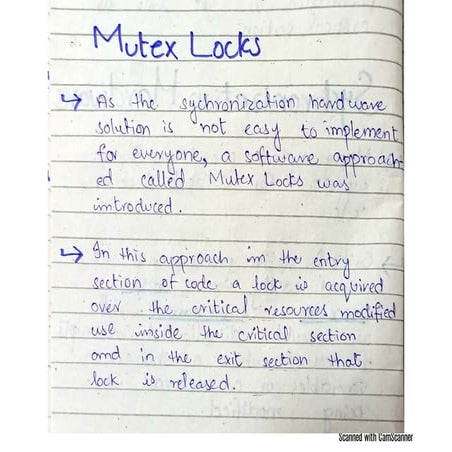 Mutex Locks
↪ As the sychronization hardware
solution is not easy to implement
for everyone, a software approach-
ed called Mutex Locks was
introduced.
↪ In this approach in the entry
section of code a lock is acquired
over the critical resources modified
use inside the critical section
and in the exit section that
lock is released.
Scanned with CamScanner